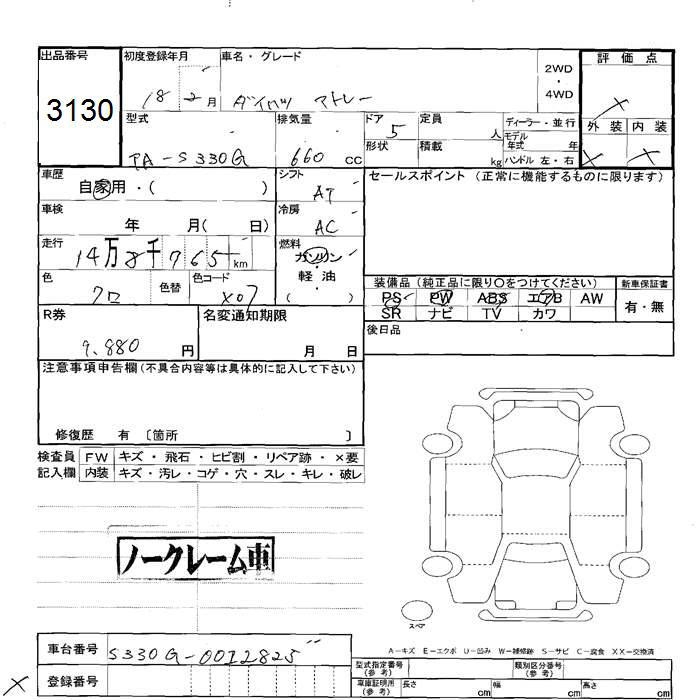 出品番号
3130
初度登録年月
18 2月
車名・グレード
ダイハツ アトレー
2WD
・
4WD
評価点
×
外装 内装
× ×
型式
TA-S330G
排気量
660 cc
ドア
5
形状
定員
人
積載
kg
ディーラー・並行
モデル
年式 年
ハンドル 左・右
車歴
自家用・( )
シフト
AT
セールスポイント (正常に機能するものに限ります)
車検
年 月( 日)
冷房
AC
走行
14万8千765km
燃料
ガソリン
・
軽油
( )
色
クロ
色替
色コード
X07
装備品 (純正品に限り〇をつけてください)
PS PW ABS エアB AW
SR ナビ TV カワ
新車保証書
有・無
R券
9,880 円
名変通知期限
月 日
後日品
注意事項申告欄 (不具合内容等は具体的に記入して下さい)
修復歴 有 〔箇所 〕
検査員
記入欄
FW キズ・飛石・ヒビ割・リペア跡・×要
内装 キズ・汚レ・コゲ・穴・スレ・キレ・破レ
ノークレーム車
スペア
A-キズ E-エクボ U-凹み W-補修跡 S-サビ C-腐食 XX-交換済
車台番号
S330G-0012825
×
登録番号
型式指定番号
(参考)
類別区分番号
(参考)
車庫証明用
(参考)
長さ cm
幅 cm
高さ cm